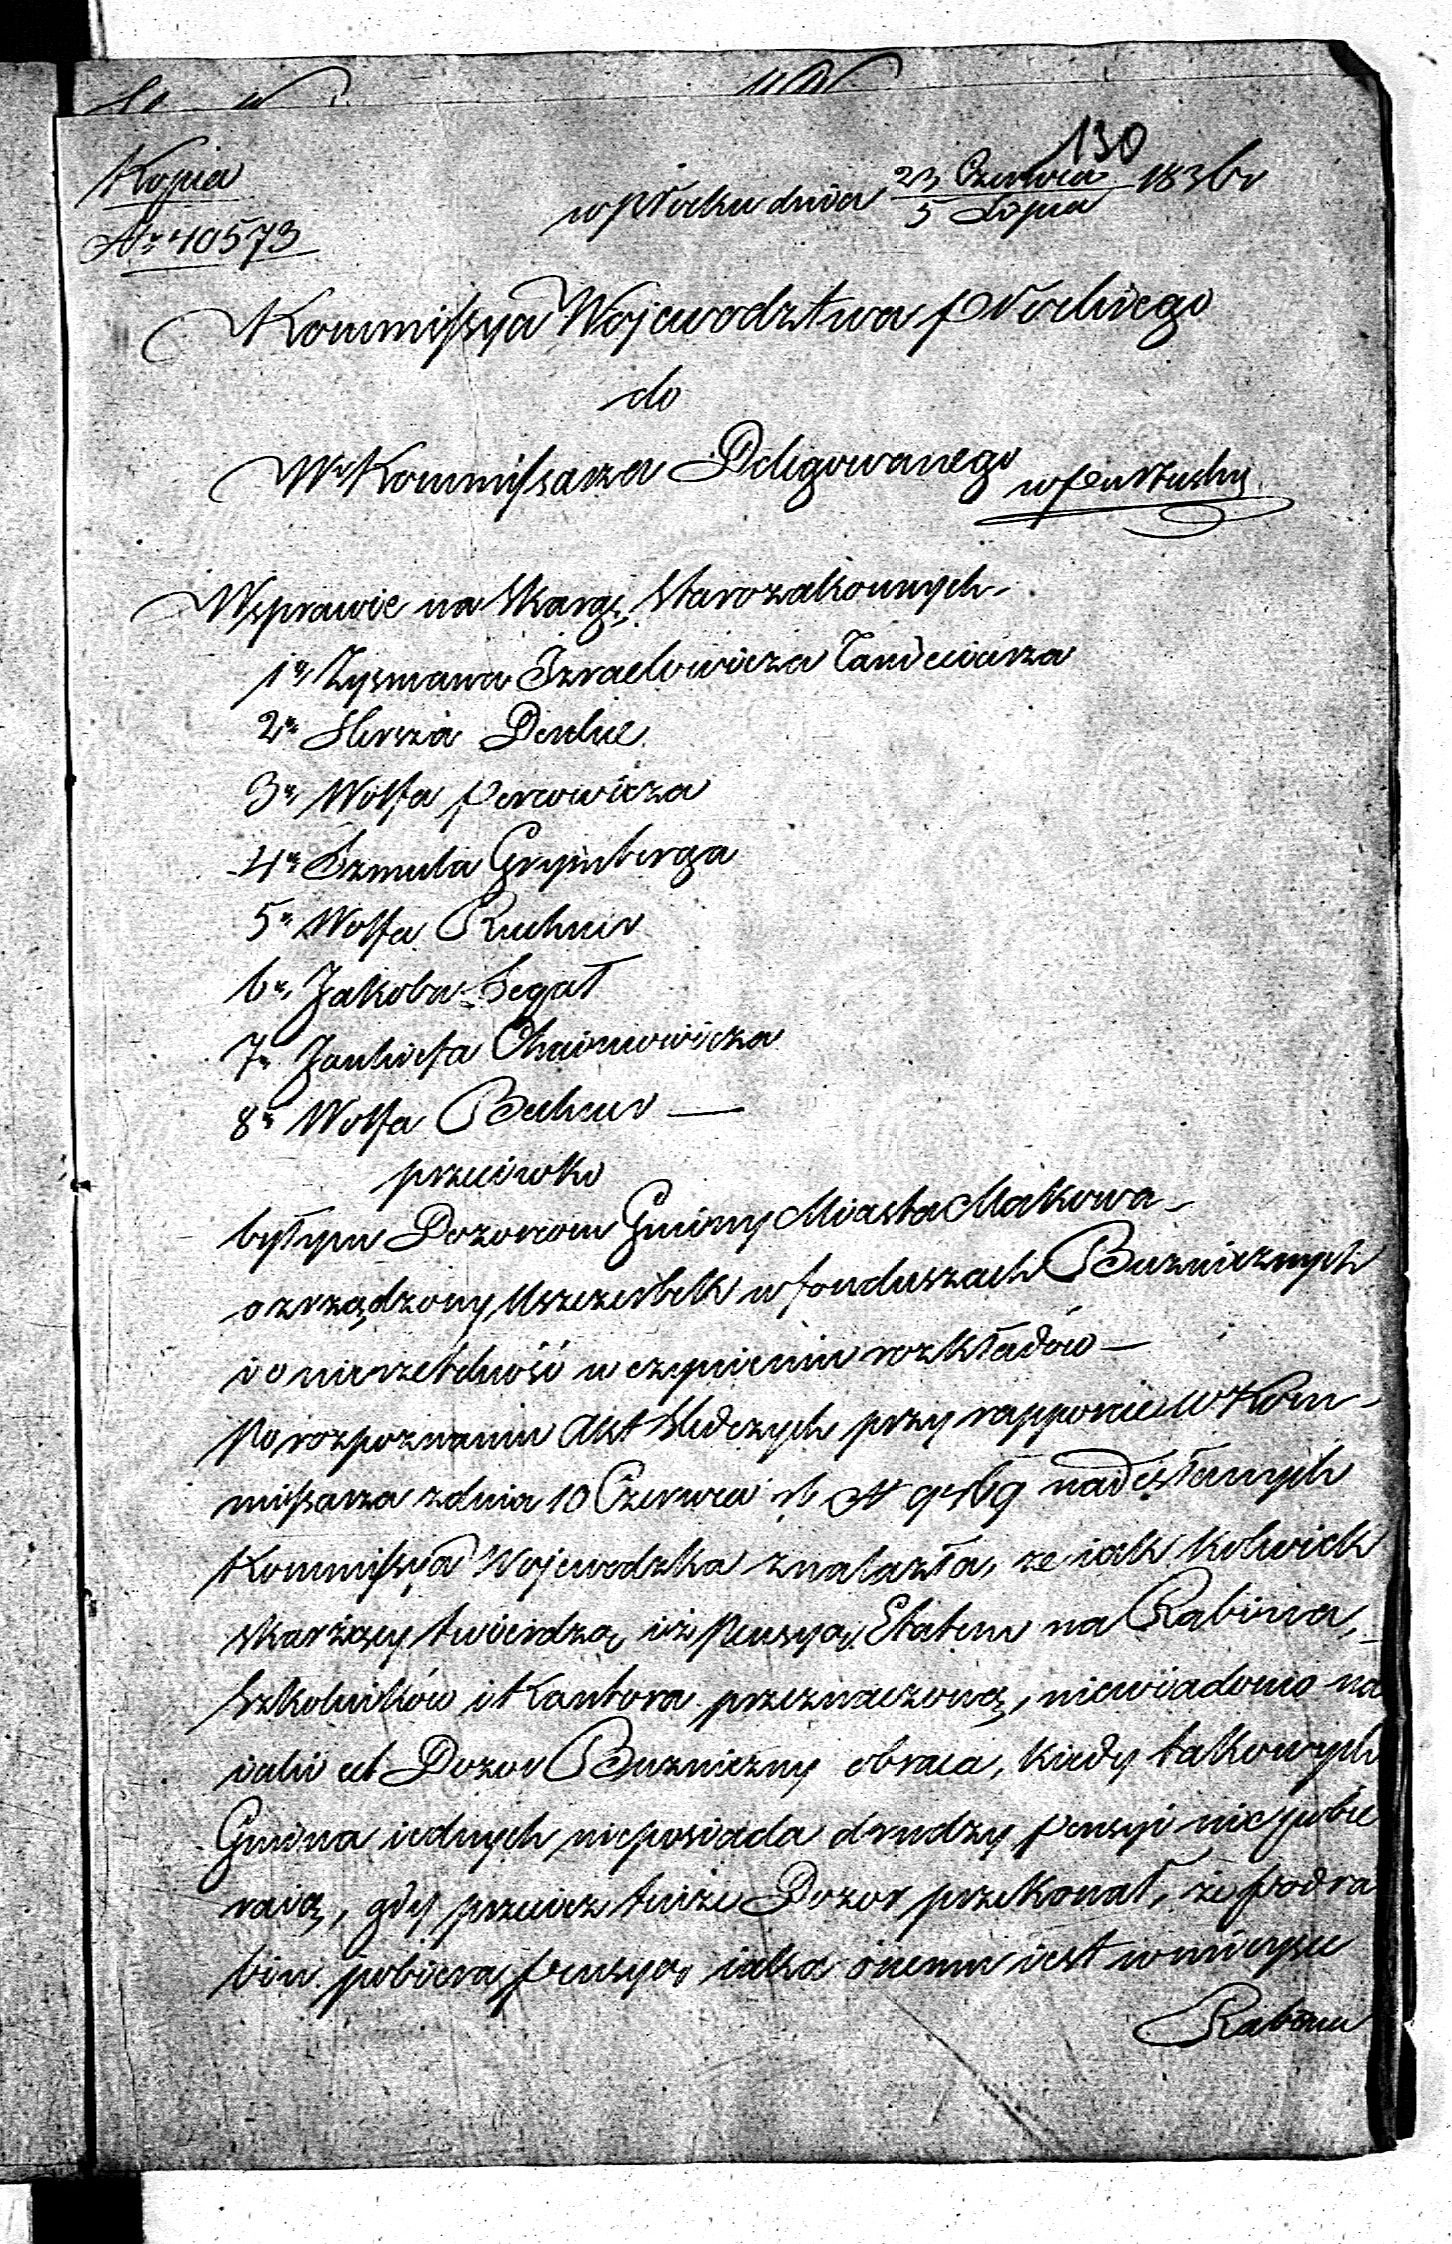 130
Kopia
w Płocku dnia 23 Czerwca / 5 Lipca 1836 r
Nr 40573
Kommissya Województwa Płockiego
do
W Kommissarza Delegowanego w Pułtusku
W sprawie na skargę Starozakonnych
1n Zysmana Izraelowicza Tandeciarza
2n Hersza
3n Wolfa Percowicza
4n Szmula Grynberga
5n Wolfa
6n Jakoba Segał
7n Jankiela Chaimowicza
8n Wolfa
przeciwko
byłym Dozorcom Gminy Miasta Makowa
o zrządzony uszczerbek w fonduszach Buznicznych
i o nierzetelność w czynieniu rozkładów —
Po rozpoznaniu Akt śledczych przy rapporcie W Kom-
missarza z dnia 10 Czerwca rb N nadesłanych
Kommissya Wojewodzka znalazła, że iak kolwiek
skarżący twierdzą, iż pensyą Etatem na Rabina,
Szkolników i Kantora przeznaczoną, niewiadomo na
iaki cel Dozor Buzniczny obraca, kiedy takowych
Gmina iednych nieposiada drudzy pensyi nie pobie
raią, gdy przeciez tenże Dozor przekonał, że podra
bin pobiera pensyą, iaka onemu iest w mieysce
Rabina